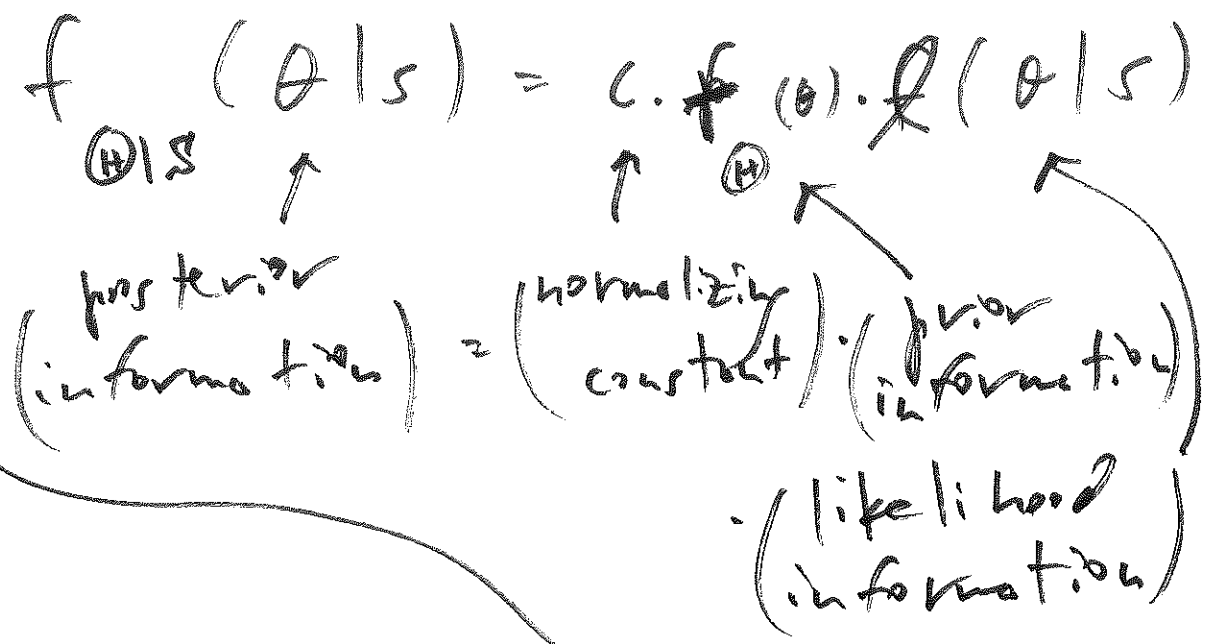 f (θ|s) = c. f (θ). ℓ(θ|s)
Θ|S Θ
(posterior information) = (normalizing constant) . (prior information)
. (likelihood information)